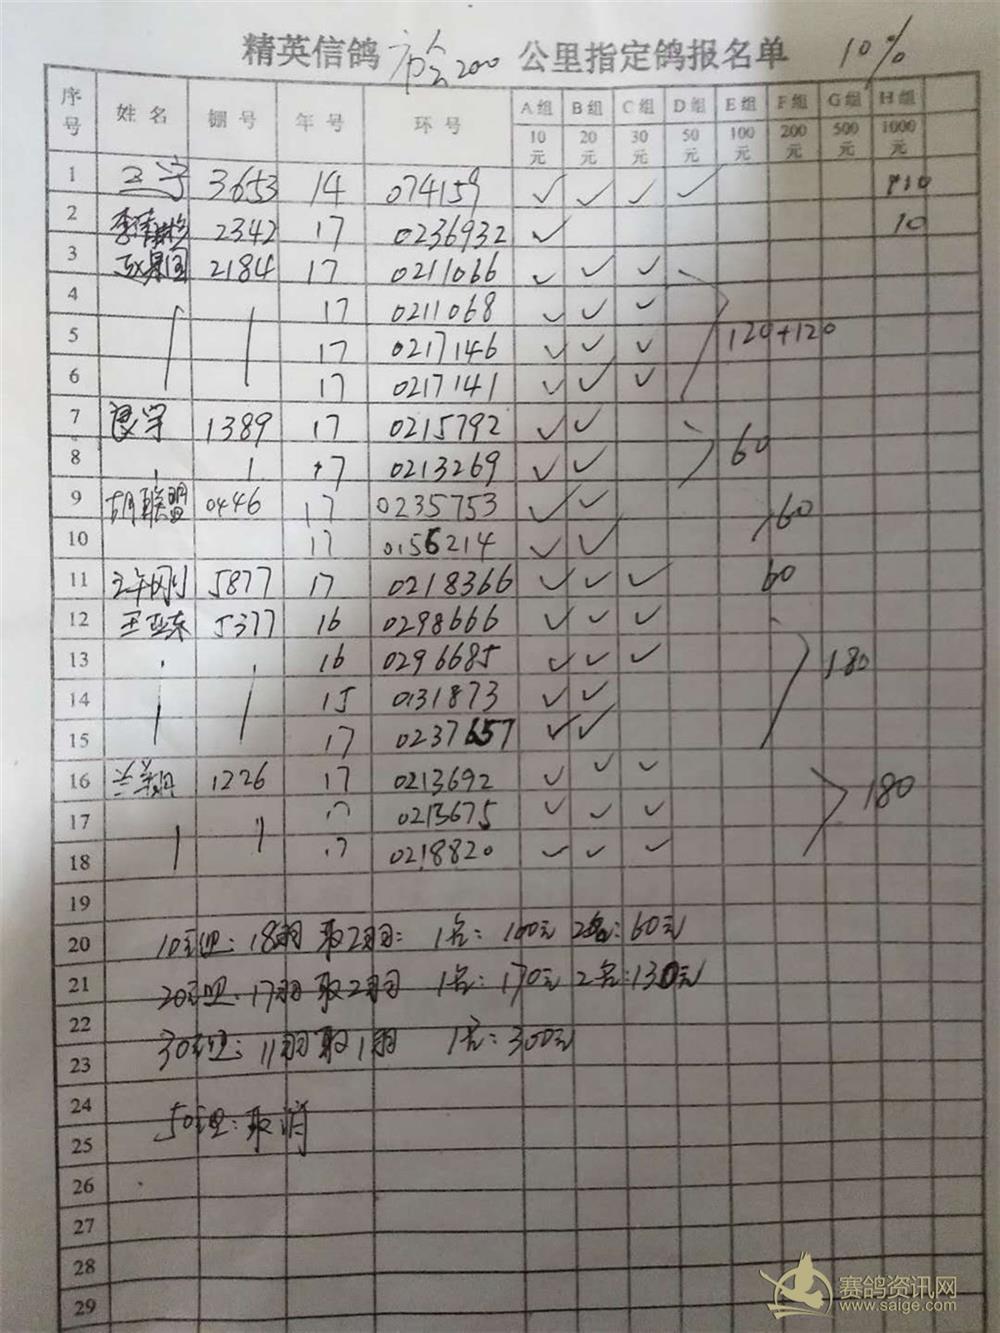 精英信鸽 市会200 公里指定鸽报名单 10%
序号 姓名 棚号 年号 环号 A组 B组 C组 D组 E组 F组 G组 H组
10元 20元 30元 50元 100元 200元 500元 1000元
1 3653 14 074159 ✓ ✓ ✓ ✓ 110
2 2342 17 0236932 ✓ 10
3 2184 17 0211066 ✓ ✓ ✓
4 17 0211068 ✓ ✓ ✓
5 17 0217146 ✓ ✓ ✓ 120+120
6 17 0217141 ✓ ✓ ✓
7 1389 17 0215792 ✓ ✓
8 17 0213269 ✓ ✓ 60
9 胡联盟 0446 17 0235753 ✓ ✓ 60
10 17 0156214 ✓ ✓
11 5877 17 0218366 ✓ ✓ ✓ 60
12 王亚东 5377 16 0298666 ✓ ✓ ✓
13 16 0296685 ✓ ✓ ✓ 180
14 15 0131873 ✓ ✓
15 17 0237657 ✓ ✓
16 兰翔 1226 17 0213692 ✓ ✓ ✓ 180
17 17 0213675 ✓ ✓ ✓
18 17 0218820 ✓ ✓ ✓
19
20 10元组:18羽 取2羽: 1名:100元 2名:60元
21 20元组:17羽取2羽 1名:170元 2名:130元
22
23 30元组:11羽取1羽 1名:300元
24
25 50元组:取消
26
27
28
29
赛鸽资讯网
www.saige.com